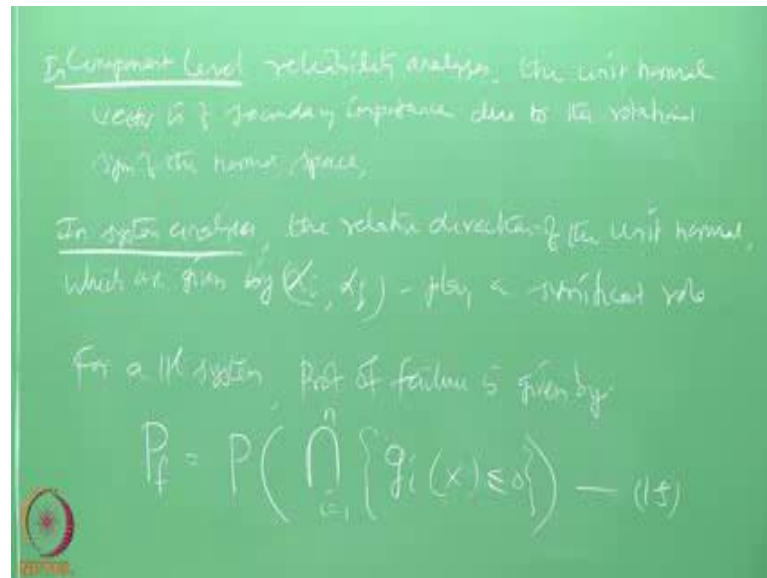 In Component Level reliability analysis, the unit normal
vector is of secondary importance due to the rotational
sym of the normal space,
In system analysis, the relative direction of the unit normal,
which are given by (αi, αj) - play a significant role
For a ||l system Prob of failure is given by
P_f = P( ⋂_{i=1}^{n} { gi(x) ≤ 0 } ) — (15)
NPTEL